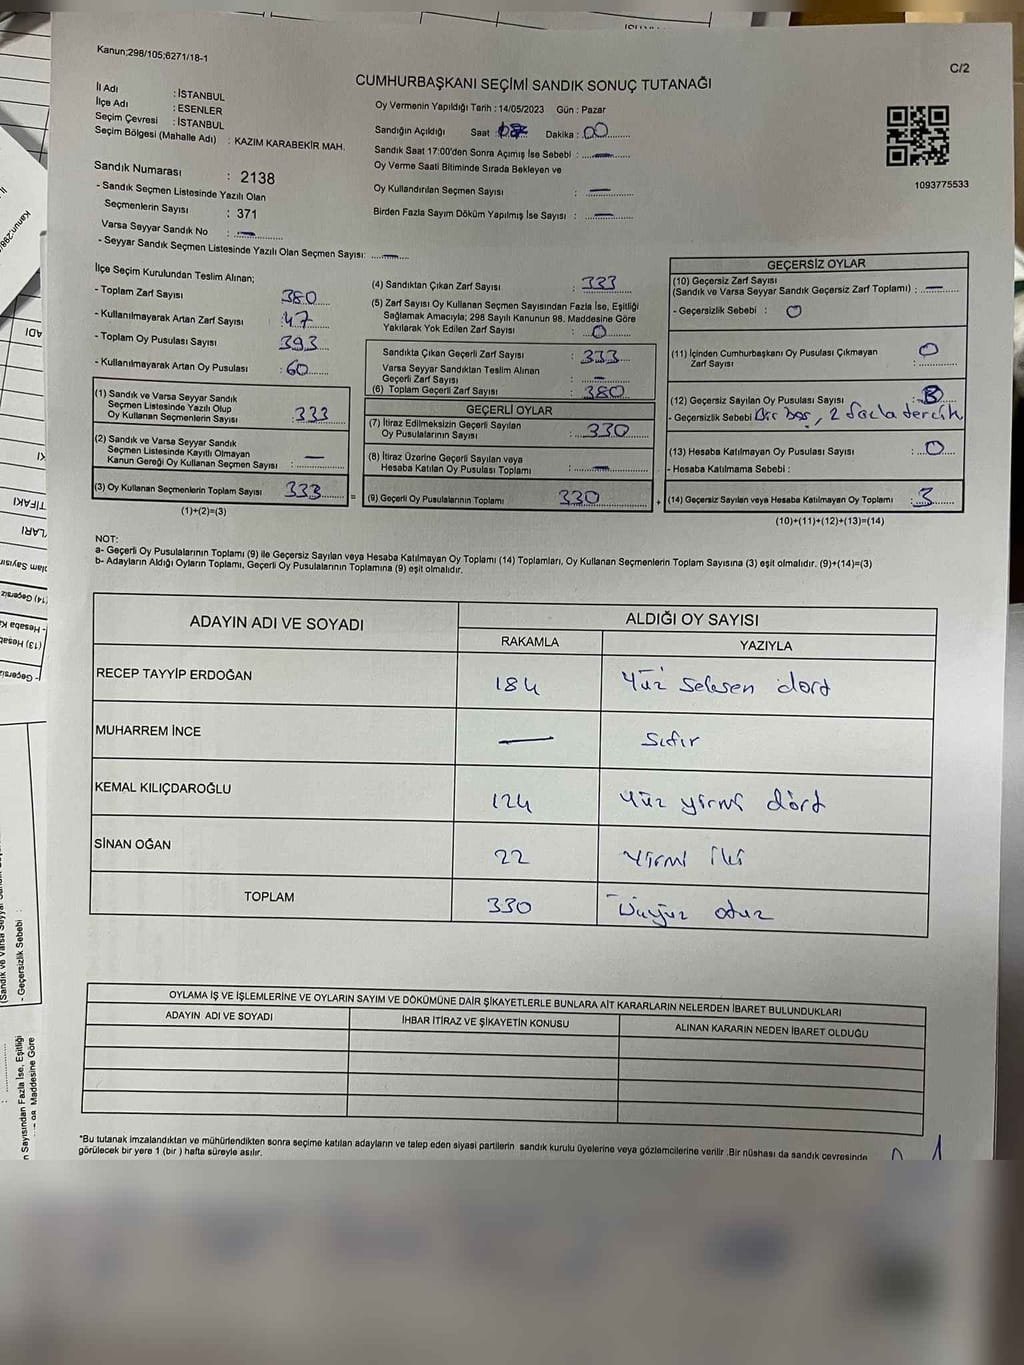 Kanun;298/105;6271/18-1
C/2
CUMHURBAŞKANI SEÇİMİ SANDIK SONUÇ TUTANAĞI
İl Adı : İSTANBUL
İlçe Adı : ESENLER
Seçim Çevresi : İSTANBUL
Seçim Bölgesi (Mahalle Adı) : KAZIM KARABEKİR MAH.
Sandık Numarası : 2138
- Sandık Seçmen Listesinde Yazılı Olan
Seçmenlerin Sayısı : 371
Varsa Seyyar Sandık No : —
- Seyyar Sandık Seçmen Listesinde Yazılı Olan Seçmen Sayısı: —
Oy Vermenin Yapıldığı Tarih : 14/05/2023 Gün : Pazar
Sandığın Açıldığı Saat : Dakika : 00
Sandık Saat 17:00'den Sonra Açımış İse Sebebi : —
Oy Verme Saati Bitiminde Sırada Bekleyen ve
Oy Kullandırılan Seçmen Sayısı : —
Birden Fazla Sayım Döküm Yapılmış İse Sayısı : —
1093775533
İlçe Seçim Kurulundan Teslim Alınan;
- Toplam Zarf Sayısı 380
- Kullanılmayarak Artan Zarf Sayısı : 47
- Toplam Oy Pusulası Sayısı 393
- Kullanılmayarak Artan Oy Pusulası : 60
(1) Sandık ve Varsa Seyyar Sandık
Seçmen Listesinde Yazılı Olup
Oy Kullanan Seçmenlerin Sayısı : 333
(2) Sandık ve Varsa Seyyar Sandık
Seçmen Listesinde Kayıtlı Olmayan
Kanun Gereği Oy Kullanan Seçmen Sayısı : —
(3) Oy Kullanan Seçmenlerin Toplam Sayısı 333
(1)+(2)=(3)
=
(4) Sandıktan Çıkan Zarf Sayısı : 333
(5) Zarf Sayısı Oy Kullanan Seçmen Sayısından Fazla İse, Eşitliği
Sağlamak Amacıyla; 298 Sayılı Kanunun 98. Maddesine Göre
Yakılarak Yok Edilen Zarf Sayısı : 0
Sandıkta Çıkan Geçerli Zarf Sayısı : 333
Varsa Seyyar Sandıktan Teslim Alınan
Geçerli Zarf Sayısı : —
(6) Toplam Geçerli Zarf Sayısı : 380
GEÇERLİ OYLAR
(7) İtiraz Edilmeksizin Geçerli Sayılan
Oy Pusulalarının Sayısı : 330
(8) İtiraz Üzerine Geçerli Sayılan veya
Hesaba Katılan Oy Pusulası Toplamı : —
(9) Geçerli Oy Pusulalarının Toplamı 330
+
GEÇERSİZ OYLAR
(10) Geçersiz Zarf Sayısı
(Sandık ve Varsa Seyyar Sandık Geçersiz Zarf Toplamı) : —
- Geçersizlik Sebebi : 0
(11) İçinden Cumhurbaşkanı Oy Pusulası Çıkmayan
Zarf Sayısı : 0
(12) Geçersiz Sayılan Oy Pusulası Sayısı : 3
- Geçersizlik Sebebi Bir boş, 2 fazla tercih
(13) Hesaba Katılmayan Oy Pusulası Sayısı : 0
- Hesaba Katılmama Sebebi :
(14) Geçersiz Sayılan veya Hesaba Katılmayan Oy Toplamı : 3
(10)+(11)+(12)+(13)=(14)
NOT:
a- Geçerli Oy Pusulalarının Toplamı (9) ile Geçersiz Sayılan veya Hesaba Katılmayan Oy Toplamı (14) Toplamları, Oy Kullanan Seçmenlerin Toplam Sayısına (3) eşit olmalıdır. (9)+(14)=(3)
b- Adayların Aldığı Oyların Toplamı, Geçerli Oy Pusulalarının Toplamına (9) eşit olmalıdır.
ADAYIN ADI VE SOYADI ALDIĞI OY SAYISI
RAKAMLA YAZIYLA
RECEP TAYYİP ERDOĞAN 184 Yüz seksen dört
MUHARREM İNCE — Sıfır
KEMAL KILIÇDAROĞLU 124 Yüz yirmi dört
SİNAN OĞAN 22 Yirmi iki
TOPLAM 330 Üçyüz otuz
OYLAMA İŞ VE İŞLEMLERİNE VE OYLARIN SAYIM VE DÖKÜMÜNE DAİR ŞİKAYETLERLE BUNLARA AİT KARARLARIN NELERDEN İBARET BULUNDUKLARI
ADAYIN ADI VE SOYADI İHBAR İTİRAZ VE ŞİKAYETİN KONUSU ALINAN KARARIN NEDEN İBARET OLDUĞU
*Bu tutanak imzalandıktan ve mühürlendikten sonra seçime katılan adayların ve talep eden siyasi partilerin sandık kurulu üyelerine veya gözlemcilerine verilir .Bir nüshası da sandık çevresinde
görülecek bir yere 1 (bir ) hafta süreyle asılır.